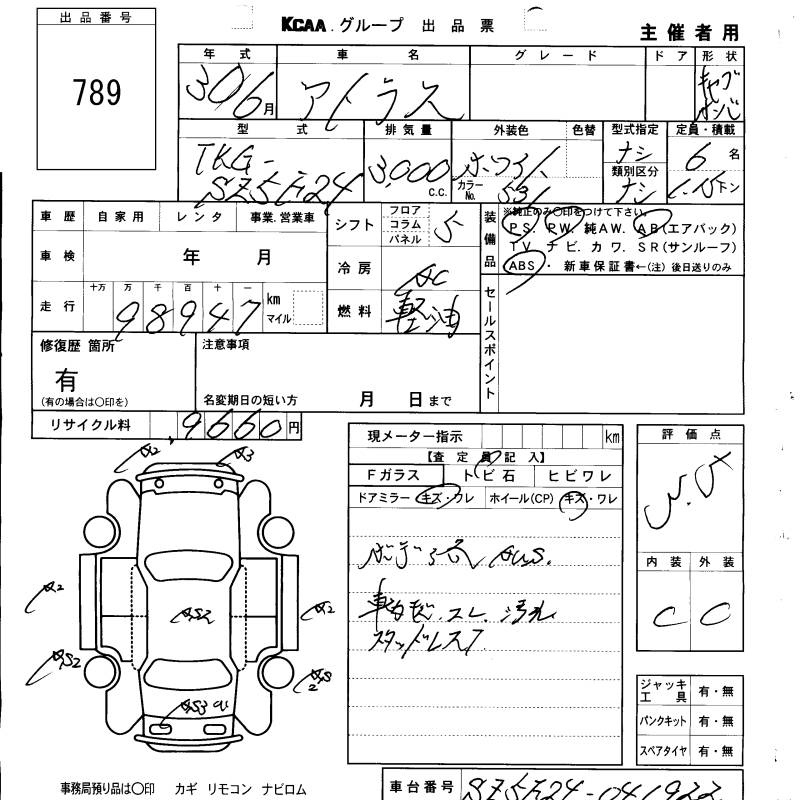 出品番号
789
KCAA.グループ 出品票
主催者用
年式 車名 グレード ドア 形状
30/6月 アトラス
型式 排気量 外装色 色替 型式指定 定員・積載
TKG-
SZ5F24
3,000 c.c.
ホワイト
カラーNo. 531
ナシ
類別区分
ナシ
6名
車歴 自家用 レンタ 事業.営業車
シフト フロア コラム パネル 5
装備品 ※純正のみ○印をつけて下さい。
PS. PW. 純AW. AB(エアバック)
TV. ナビ. カワ. SR(サンルーフ)
ABS・ 新車保証書←(注) 後日送りのみ
車検 年 月
冷房 AC
走行 十万 万 千 百 十 一 km マイル
98947
燃料 軽油
セールスポイント
修復歴 箇所
有
(有の場合は○印を)
注意事項
名変期日の短い方 月 日まで
リサイクル料 9660円
現メーター指示 km
【査定員記入】
Fガラス トビ石 ヒビワレ
ドアミラー キズ・ワレ ホイール(CP) キズ・ワレ
評価点
内装 外装
C C
A2 A3
A2 AS2 A2
AS2 AS2
AS3
スレ. 汚れ
スタッドレス7
ジャッキ工具 有・無
パンクキット 有・無
スペアタイヤ 有・無
事務局預り品は○印 カギ リモコン ナビロム
車台番号 SZ5F24-041922